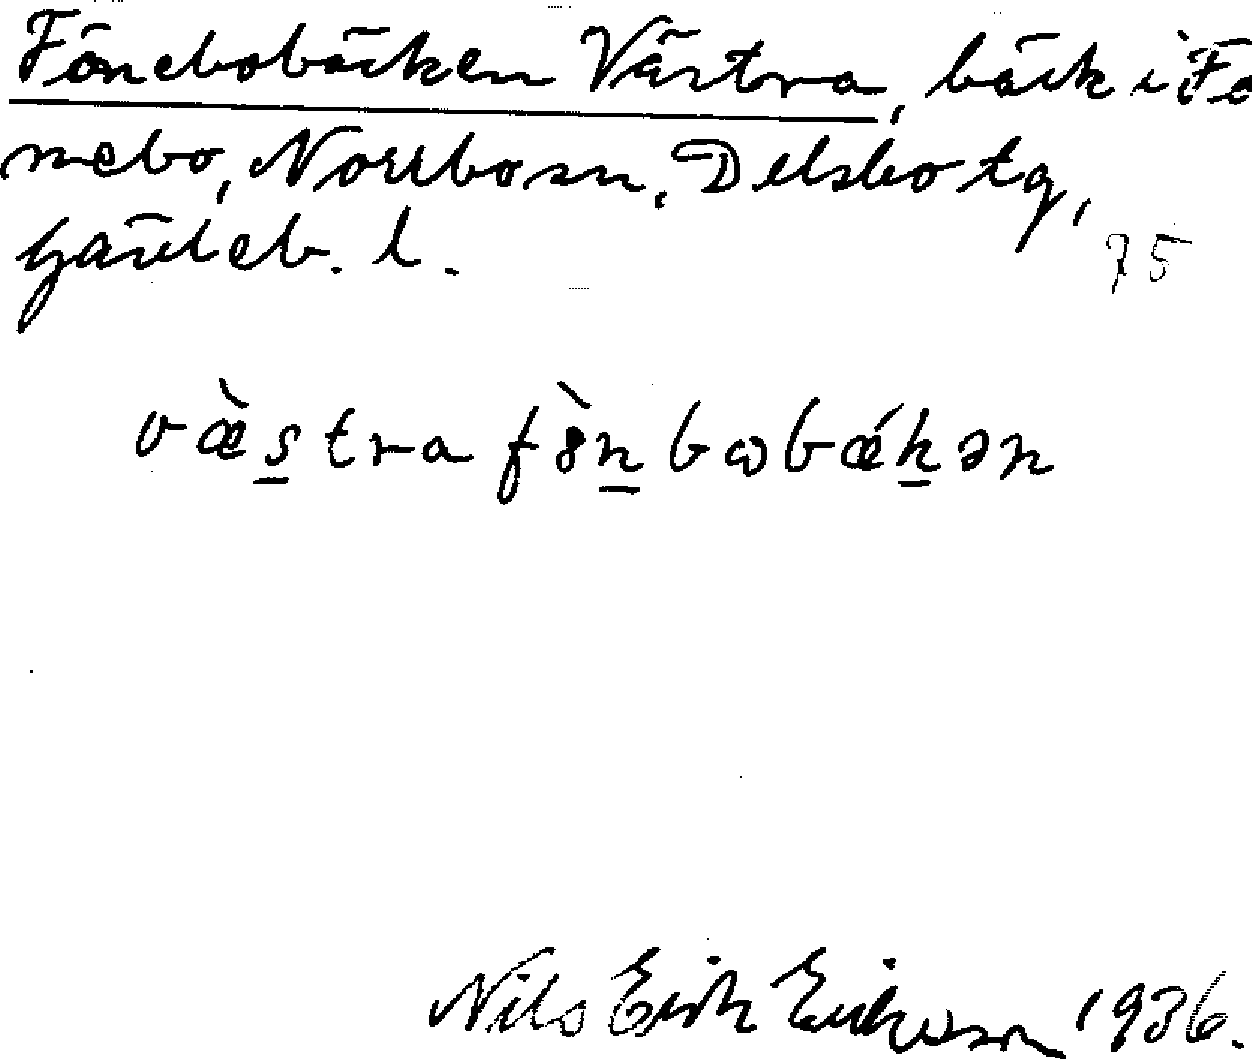 Fönebobäcken Västra, bäck i Fö
nebo, Norrbo sn, Delsbo tg,
Gävleb. l. 75
væ̀s̲tra fò̤n̲bωbǽk̲ən
Nils Erik Eriksson 1936.